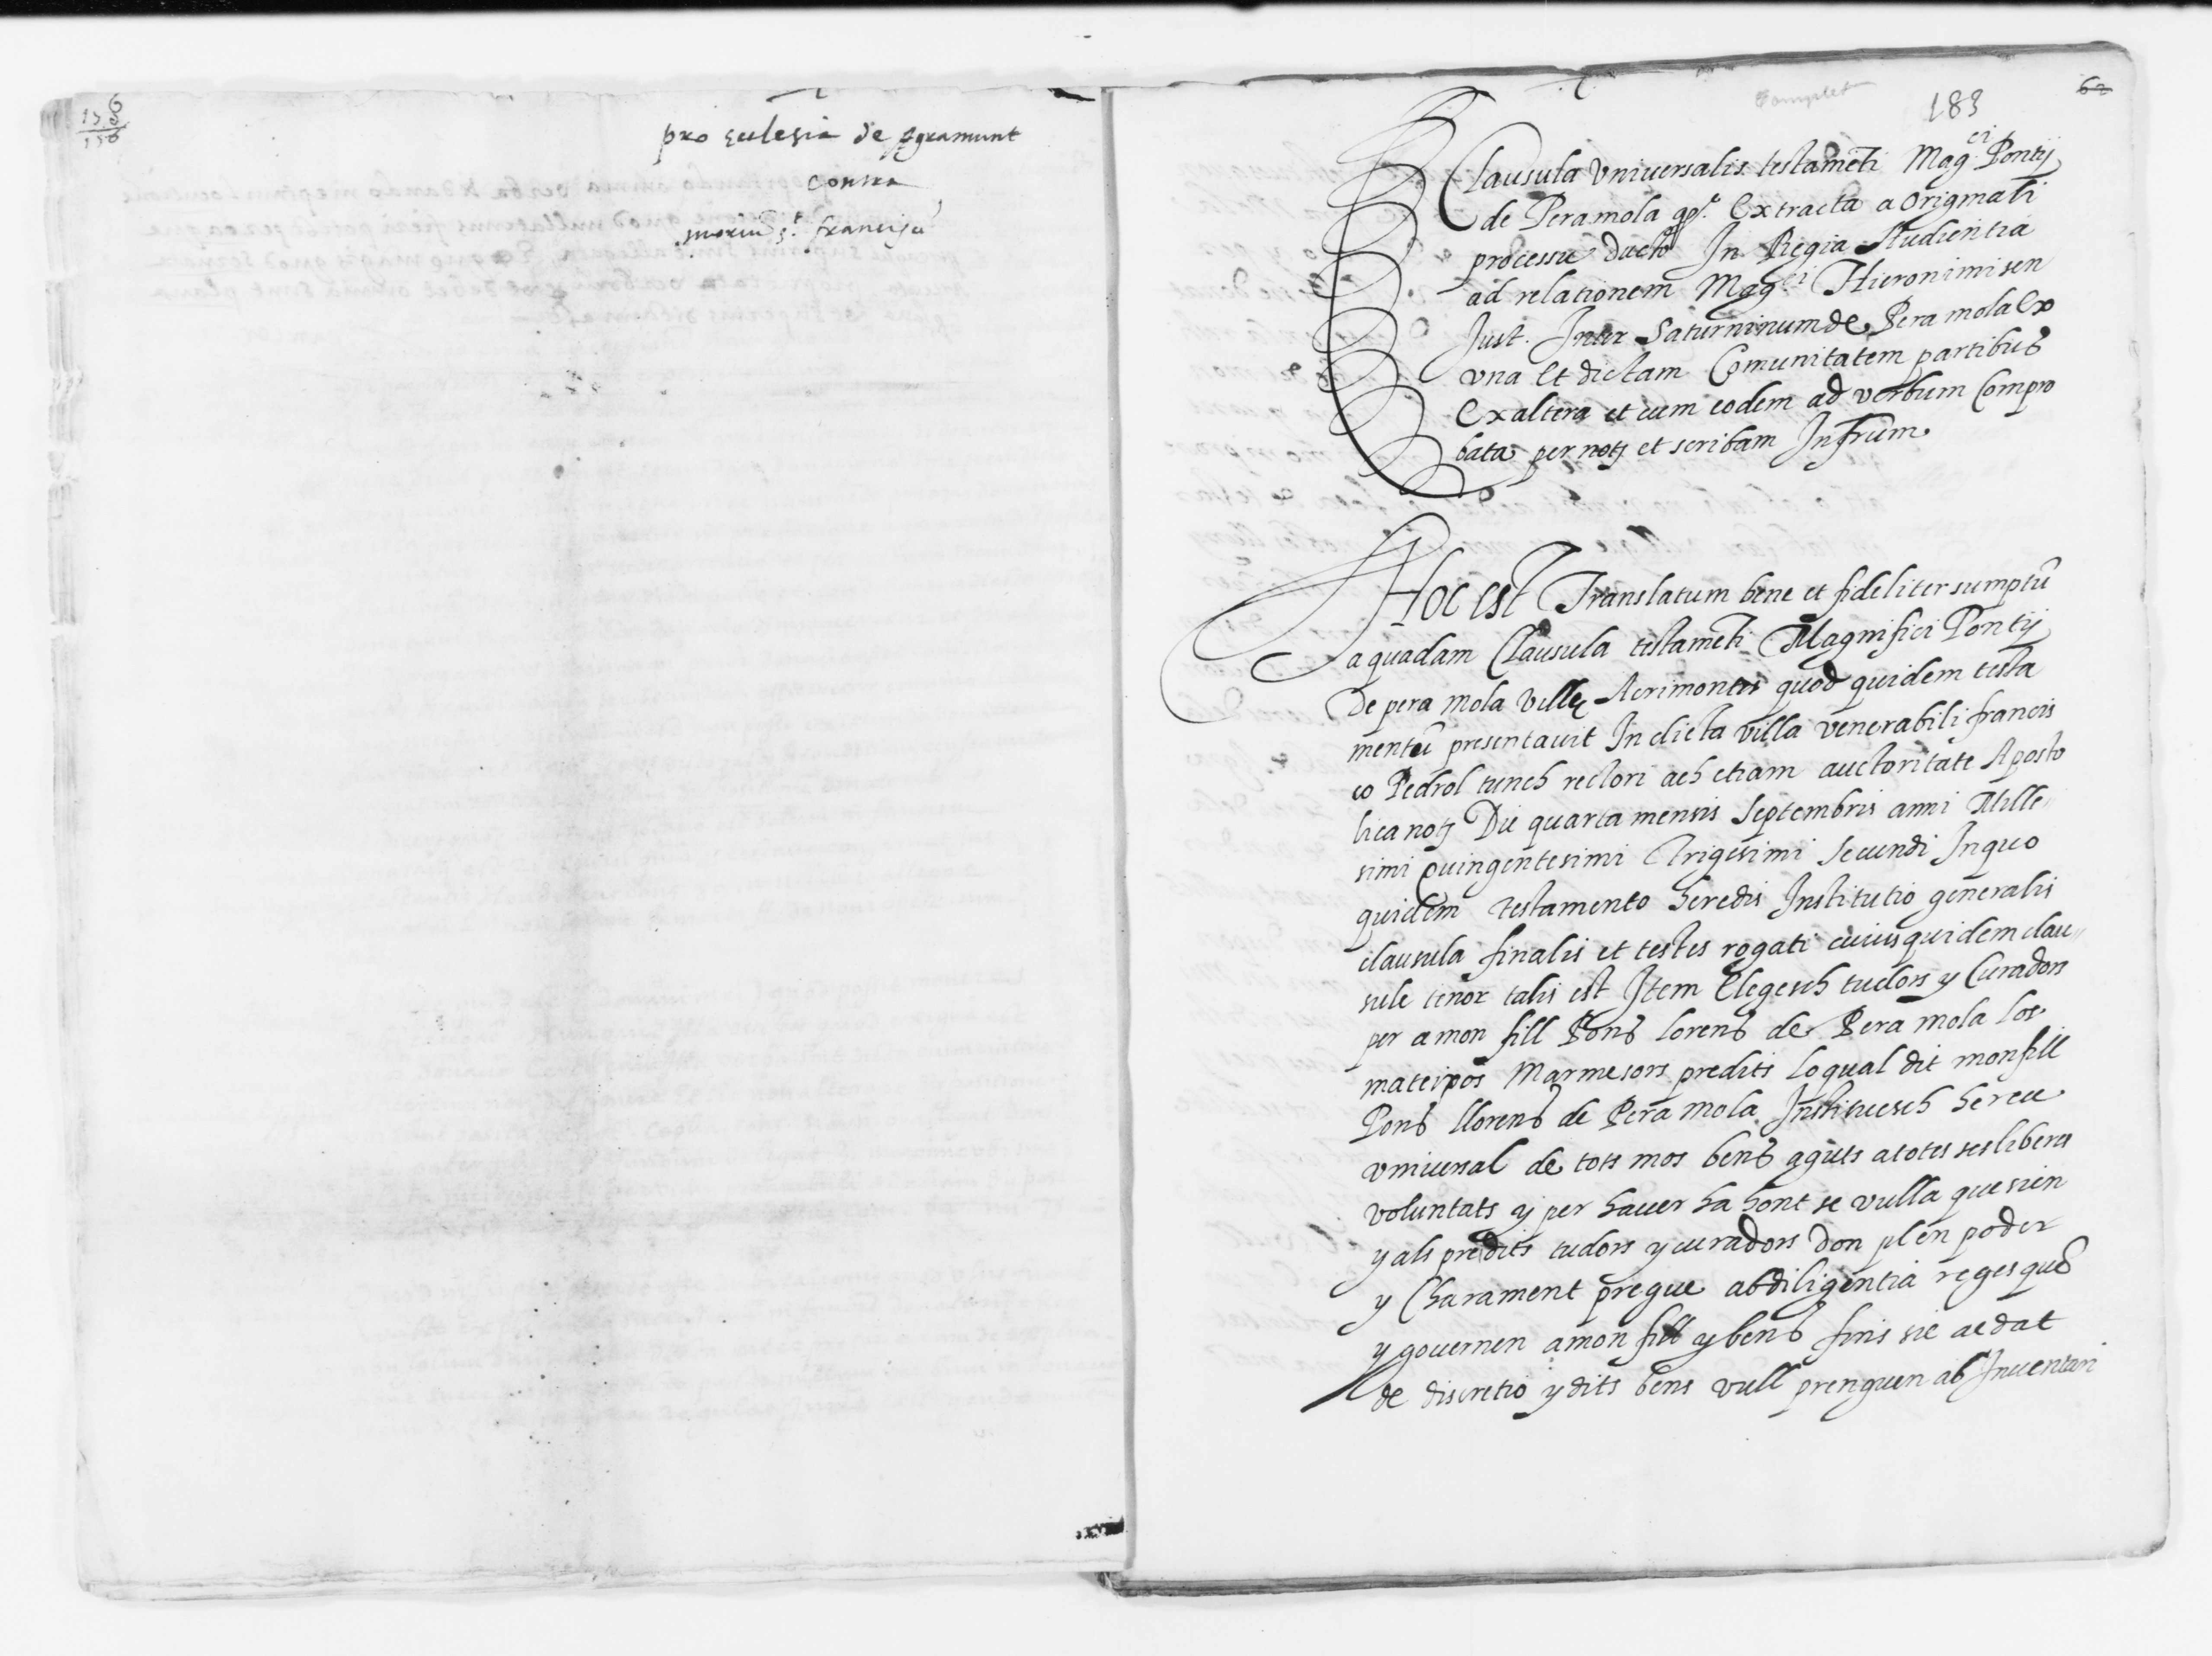 156
156
pro ecclesia de Agramunt
contra
complet
183
62
Clausula vniuersalis testamēti Mag.ci Pontij
de Peramola qº. Extracta a originali
processu ducto In Regia Audientia
ad relationem Mag.ci Hieronimi sen
Just. Inter Saturninum de Pera mola Ex
vna Et dictam Comunitatem partibus
Ex altera et cum eodem ad verbum Compro
bata per notȝ et scribam Infrum.
Hoc est Translatum bene et fideliter sumptū
a quadam Clausula testamēti Magnifici Pontij
De pera mola Ville Acrimontis quod quidem testa
mentū presentauit In dicta villa venerabili francis
co Pedrol tunch rectori ach etiam auctoritate Aposto
lica notȝ Die quarta mensis Septembris anni Mille„
simi Quingentesimi Trigesimi Secundi In quo
quidem testamento heredis Institutio generalis
clausula finalis et testes rogati cuius quidem clau„
sule tenor talis est Item Elegesch tudors y Curadors
per a mon fill Pons lorens de Pera mola los
mateixos Marmesors predits lo qual dit mon fill
Pons llorens de Pera mola Instituesch hereu
vniuersal de tots mos bens aguts a totes ses liberes
voluntats y per hauer ha hont se vulla que sien
y als predits tudors y curadors don plen poder
y Charament pregue ab diligentia reges que
y gouernen a mon fill y bens fins sie a edat
de discretio y dits bens vull prenguen ab Inuentari